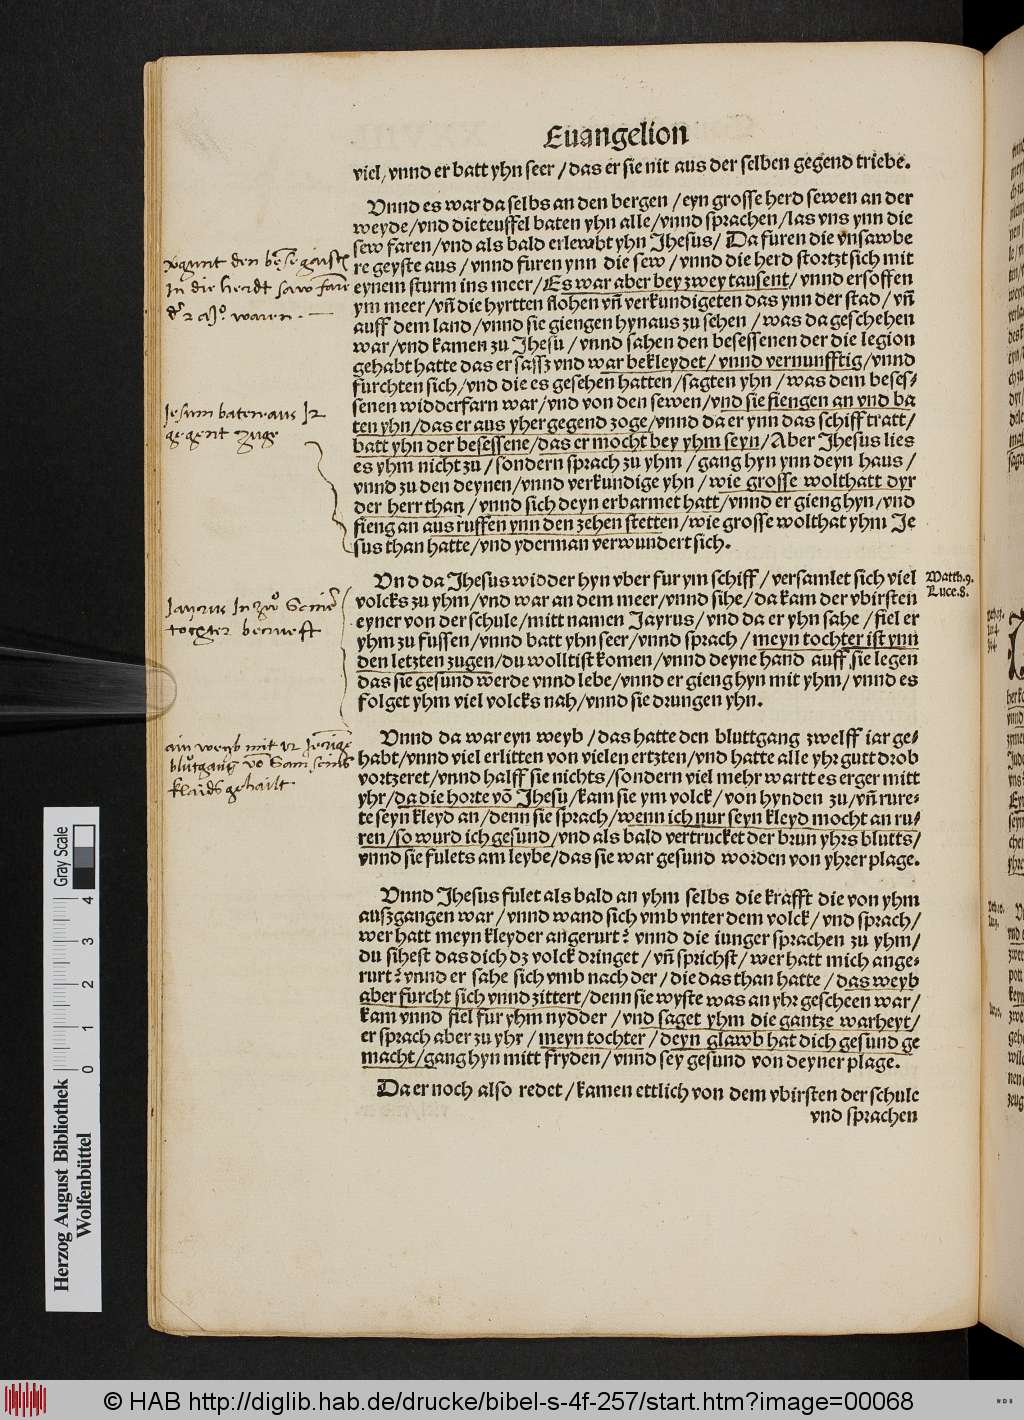 Euangelion
viel/vnnd er batt yhn seer/das er sie nit aus der selben gegend triebe.
Vnnd es war daselbs an den bergen/eyn grosse herd sewen an der
weyde/vnd die teuffel baten yhn alle/vnnd sprachen/las vns ynn die
sew faren/vnd als bald erlewbt yhn Jhesus/Da furen die vnsawbe
re geyste aus/vnnd furen ynn die sew/vnnd die herd stortzt sich mit
eynem sturm ins meer/Es war aber bey zwey tausent/vnnd ersoffen
ym meer/vñ die hyrtten flohen vñ verkundigeten das ynn der stad/vñ
auff dem land/vnnd sie giengen hynaus zu sehen/was da geschehen
war/vnd kamen zu Jhesu/vnnd sahen den besessenen der die legion
gehabt hatte das er sassz vnd war bekleydet/vnnd vernunfftig/vnnd
furchten sich/vnd die es gesehen hatten/sagten yhn/was dem beses-
senen widderfarn war/vnd von den sewen/vnd sie fiengen an vnd ba
ten yhn/das er aus yher gegend zoge/vnnd da er ynn das schiff tratt/
batt yhn der besessene/das er mocht bey yhm seyn/Aber Jhesus lies
es yhm nicht zu/sondern sprach zu yhm/gang hyn ynn deyn haus/
vnnd zu den deynen/vnnd verkundige yhn/wie grosse wolthatt dyr
der herr than/vnnd sich deyn erbarmet hatt/vnnd er gieng hyn/vnd
fieng an aus ruffen ynn den zehen stetten/wie grosse wolthat yhm Je
sus than hatte/vnd yderman verwundert sich.
Vnd da Jhesus widder hyn vber fur ym schiff/versamlet sich viel
volcks zu yhm/vnd war an dem meer/vnnd sihe/da kam der vbirsten
eyner von der schule/mitt namen Jayrus/vnd da er yhn sahe/fiel er
yhm zu fussen/vnnd batt yhn seer/vnnd sprach/meyn tochter ist ynn
den letzten zugen/du wolltist komen/vnnd deyne hand auff sie legen
das sie gesund werde vnnd lebe/vnnd er gieng hyn mit yhm/vnnd es
folget yhm viel volcks nah/vnnd sie drungen yhn.
Matth.9.
Luce.8.
Vnnd da war eyn weyb/das hatte den bluttgang zwelff iar ge-
habt/vnnd viel erlitten von vielen ertzten/vnd hatte alle yhr gutt drob
vortzeret/vnnd halff sie nichts/sondern viel mehr wartt es erger mitt
yhr/da die horte võ Jhesu/kam sie ym volck/von hynden zu/vñ rure-
te seyn kleyd an/denn sie sprach/wenn ich nur seyn kleyd mocht an ru-
ren/so wurd ich gesund/vnd als bald vertrucket der brun yhrs blutts/
vnnd sie fulets am leybe/das sie war gesund worden von yhrer plage.
Vnnd Jhesus fulet als bald an yhm selbs die krafft die von yhm
auszgangen war/vnnd wand sich vmb vnter dem volck/vnd sprach/
wer hatt meyn kleyder angerurt? vnnd die iunger sprachen zu yhm/
du sihest das dich dz volck dringet/vñ sprichst/wer hatt mich ange-
rurt? vnnd er sahe sich vmb nach der/die das than hatte/das weyb
aber furcht sich vnnd zittert/denn sie wyste was an yhr gescheen war/
kam vnnd fiel fur yhm nydder/vnd saget yhm die gantze warheyt/
er sprach aber zu yhr/meyn tochter/deyn glawb hat dich gesund ge
macht/gang hyn mitt fryden/vnnd sey gesund von deyner plage.
Da er noch also redet/kamen ettlich von dem vbirsten der schule
vnd sprachen
Jesum baten aus Ir
gegent zuge
tochter beruefft
klaids gehailt
Gray Scale
0 1 2 3 4
Herzog August Bibliothek
Wolfenbüttel
© HAB http://diglib.hab.de/drucke/bibel-s-4f-257/start.htm?image=00068